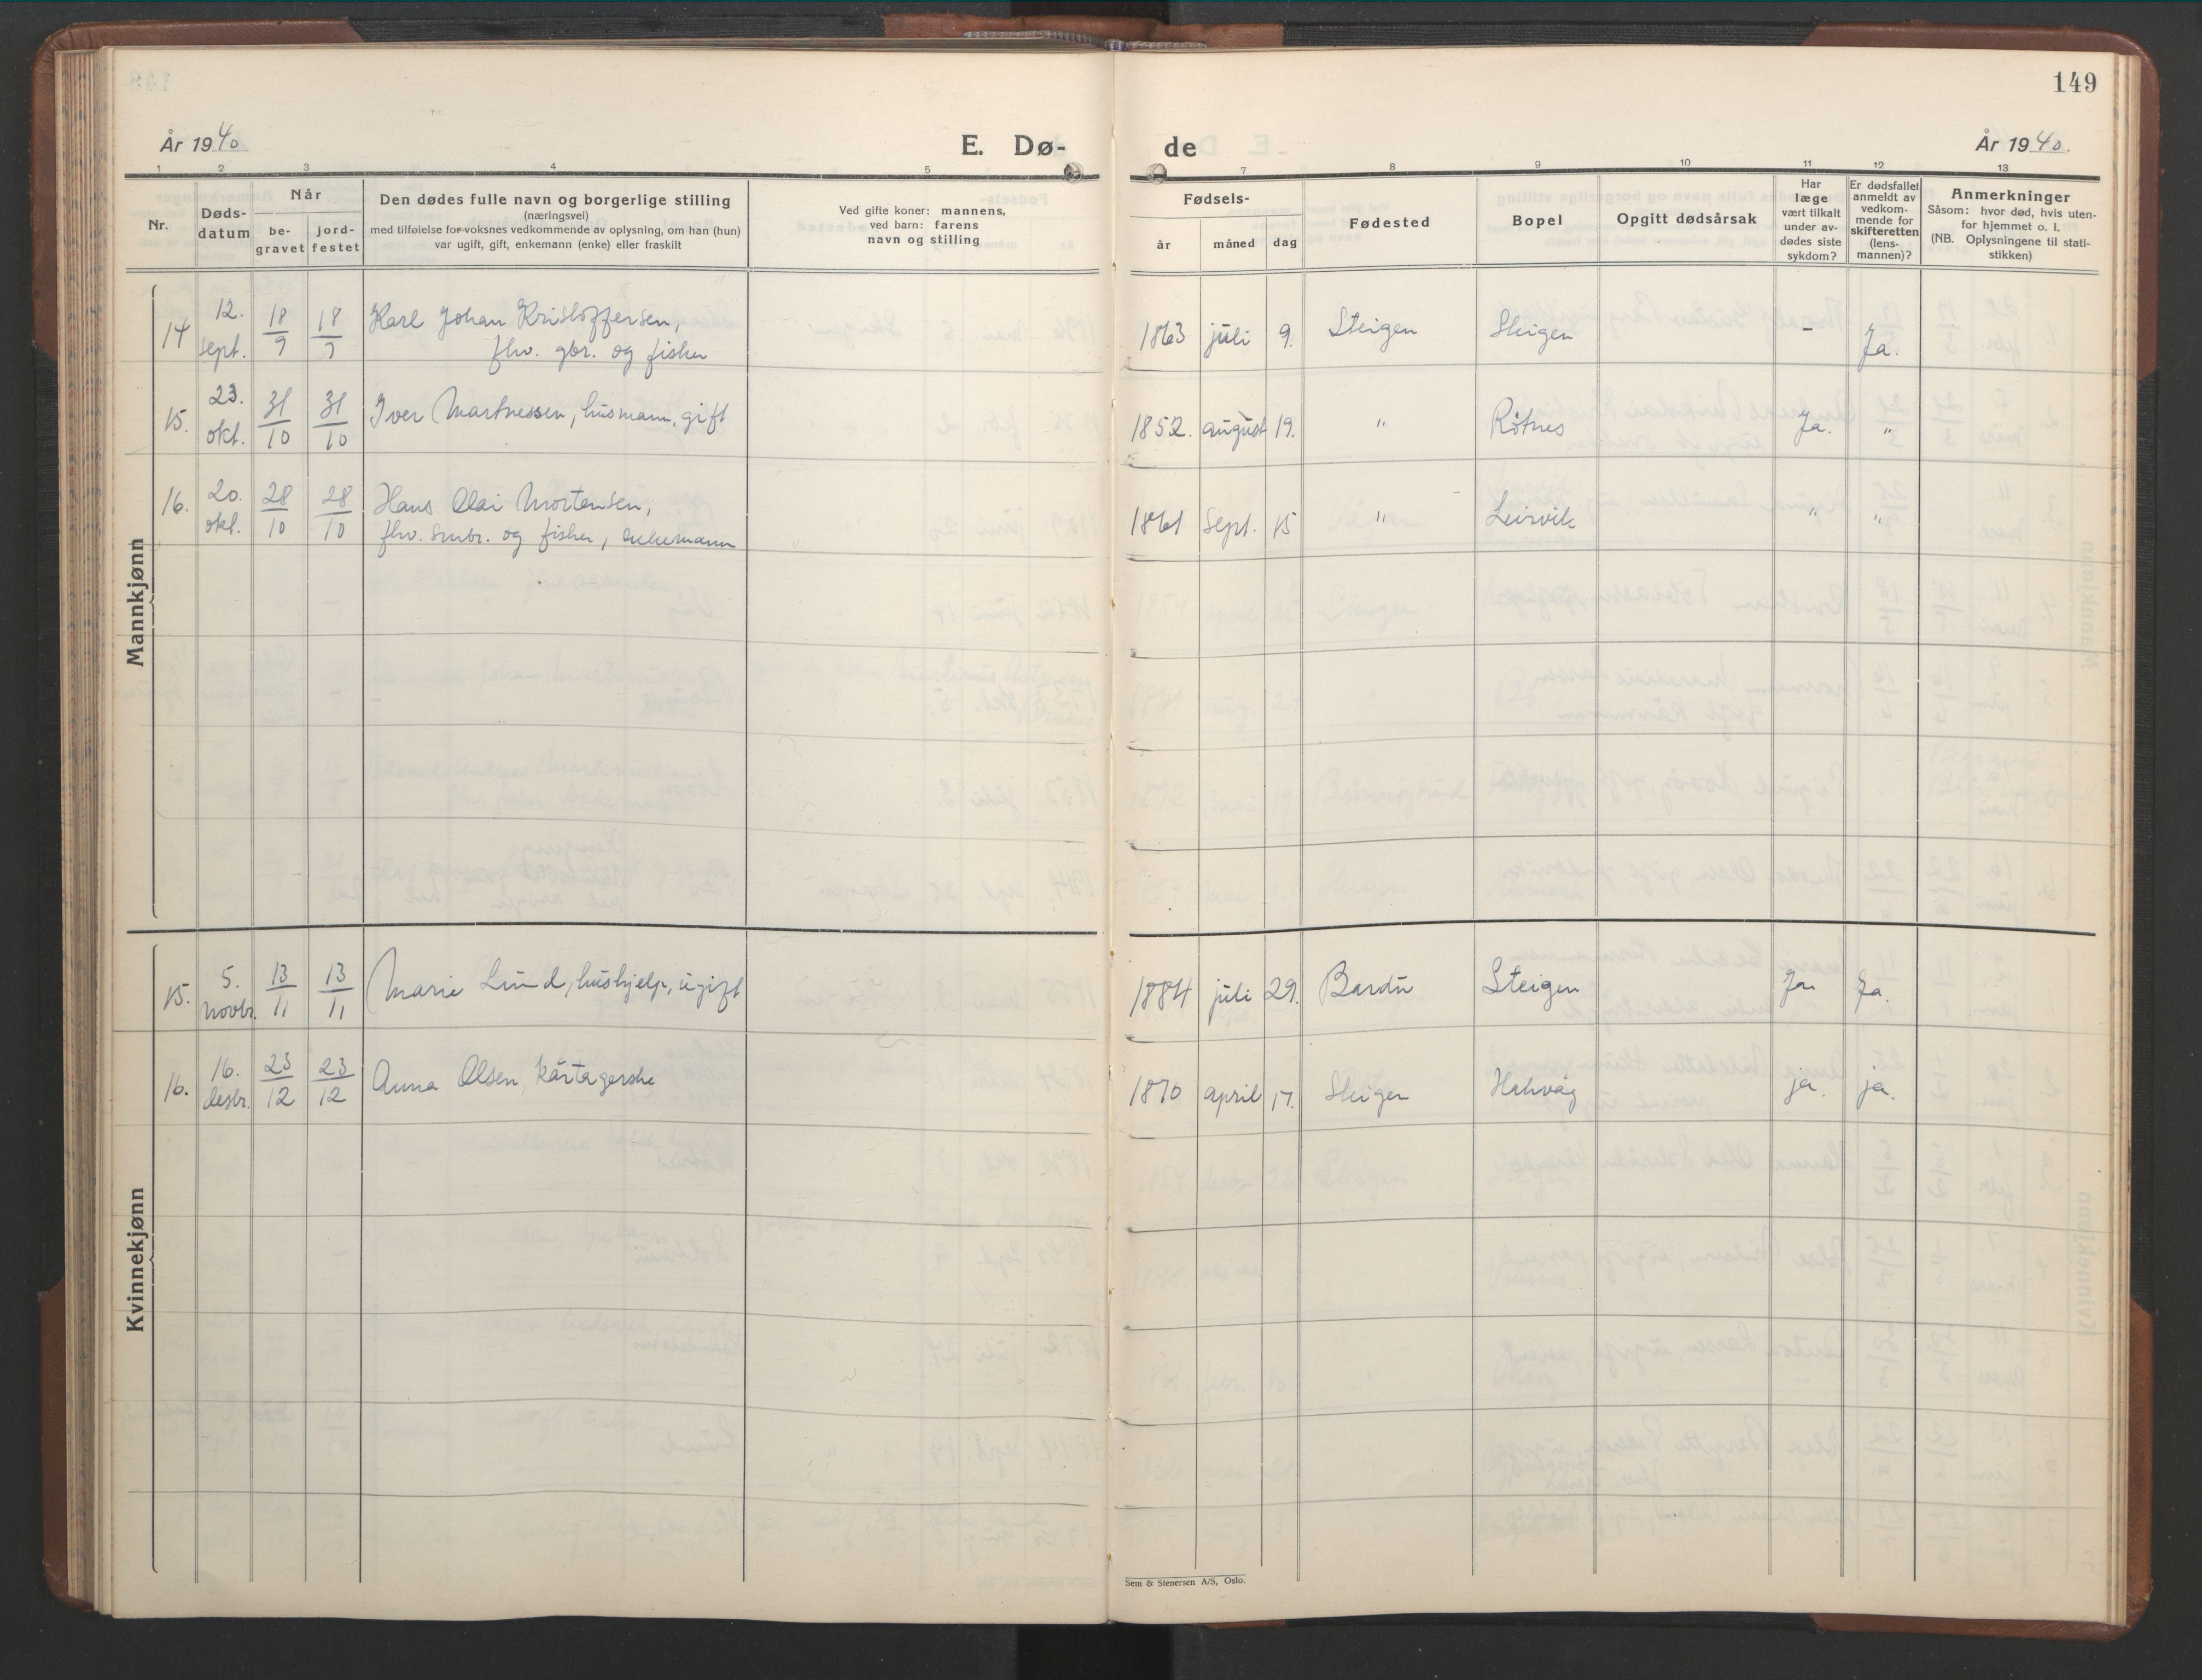 149
År 1940
E. Dø-
de
År 1940.
1 2 3 4 5
7 8 9 10 11 12 13
Nr.
Døds-
datum
Når
be-
gravet
jord-
festet
Den dødes fulle navn og borgerlige stilling
(næringsvei)
med tilføielse for voksnes vedkommende av oplysning, om han (hun)
var ugift, gift, enkemann (enke) eller fraskilt
Ved gifte koner: mannens,
ved barn: farens
navn og stilling
Fødsels-
år måned dag
Fødested
Bopel
Opgitt dødsårsak
Har
læge
vært tilkalt
under av-
dødes siste
sykdom?
Er dødsfallet
anmeldt av
vedkom-
mende for
skifteretten
(lens-
mannen)?
Anmerkninger
Såsom: hvor død, hvis uten-
for hjemmet o. l.
(NB. Oplysningene til stati-
stikken)
Mannkjønn
14 12. sept. 18/9 18/9 Karl Johan Kristoffersen,
fhv. gbr. og fisker
1863 juli 9. Steigen Steigen - Ja.
15. 23. okt. 31/10 31/10 Iver Martnessen, husmann, gift
1852. august 19. " Røtnes Ja. "
16. 20. okt. 28/10 28/10 Hans Olai Mortensen,
fhv. smbr. og fisker, enkemann
1861 sept. 15 " Leirvik " "
Kvinnekjønn
15. 5. novbr. 13/11 13/11 Marie Lund, hushjelp, ugift
1884 juli 29. Bardu Steigen Ja Ja.
16. 16. desbr. 23/12 23/12 Anna Olsen, kårtagerske
1870 april 17. Steigen Holkvåg ja. ja.
Sem & Stenersen A/S, Oslo.